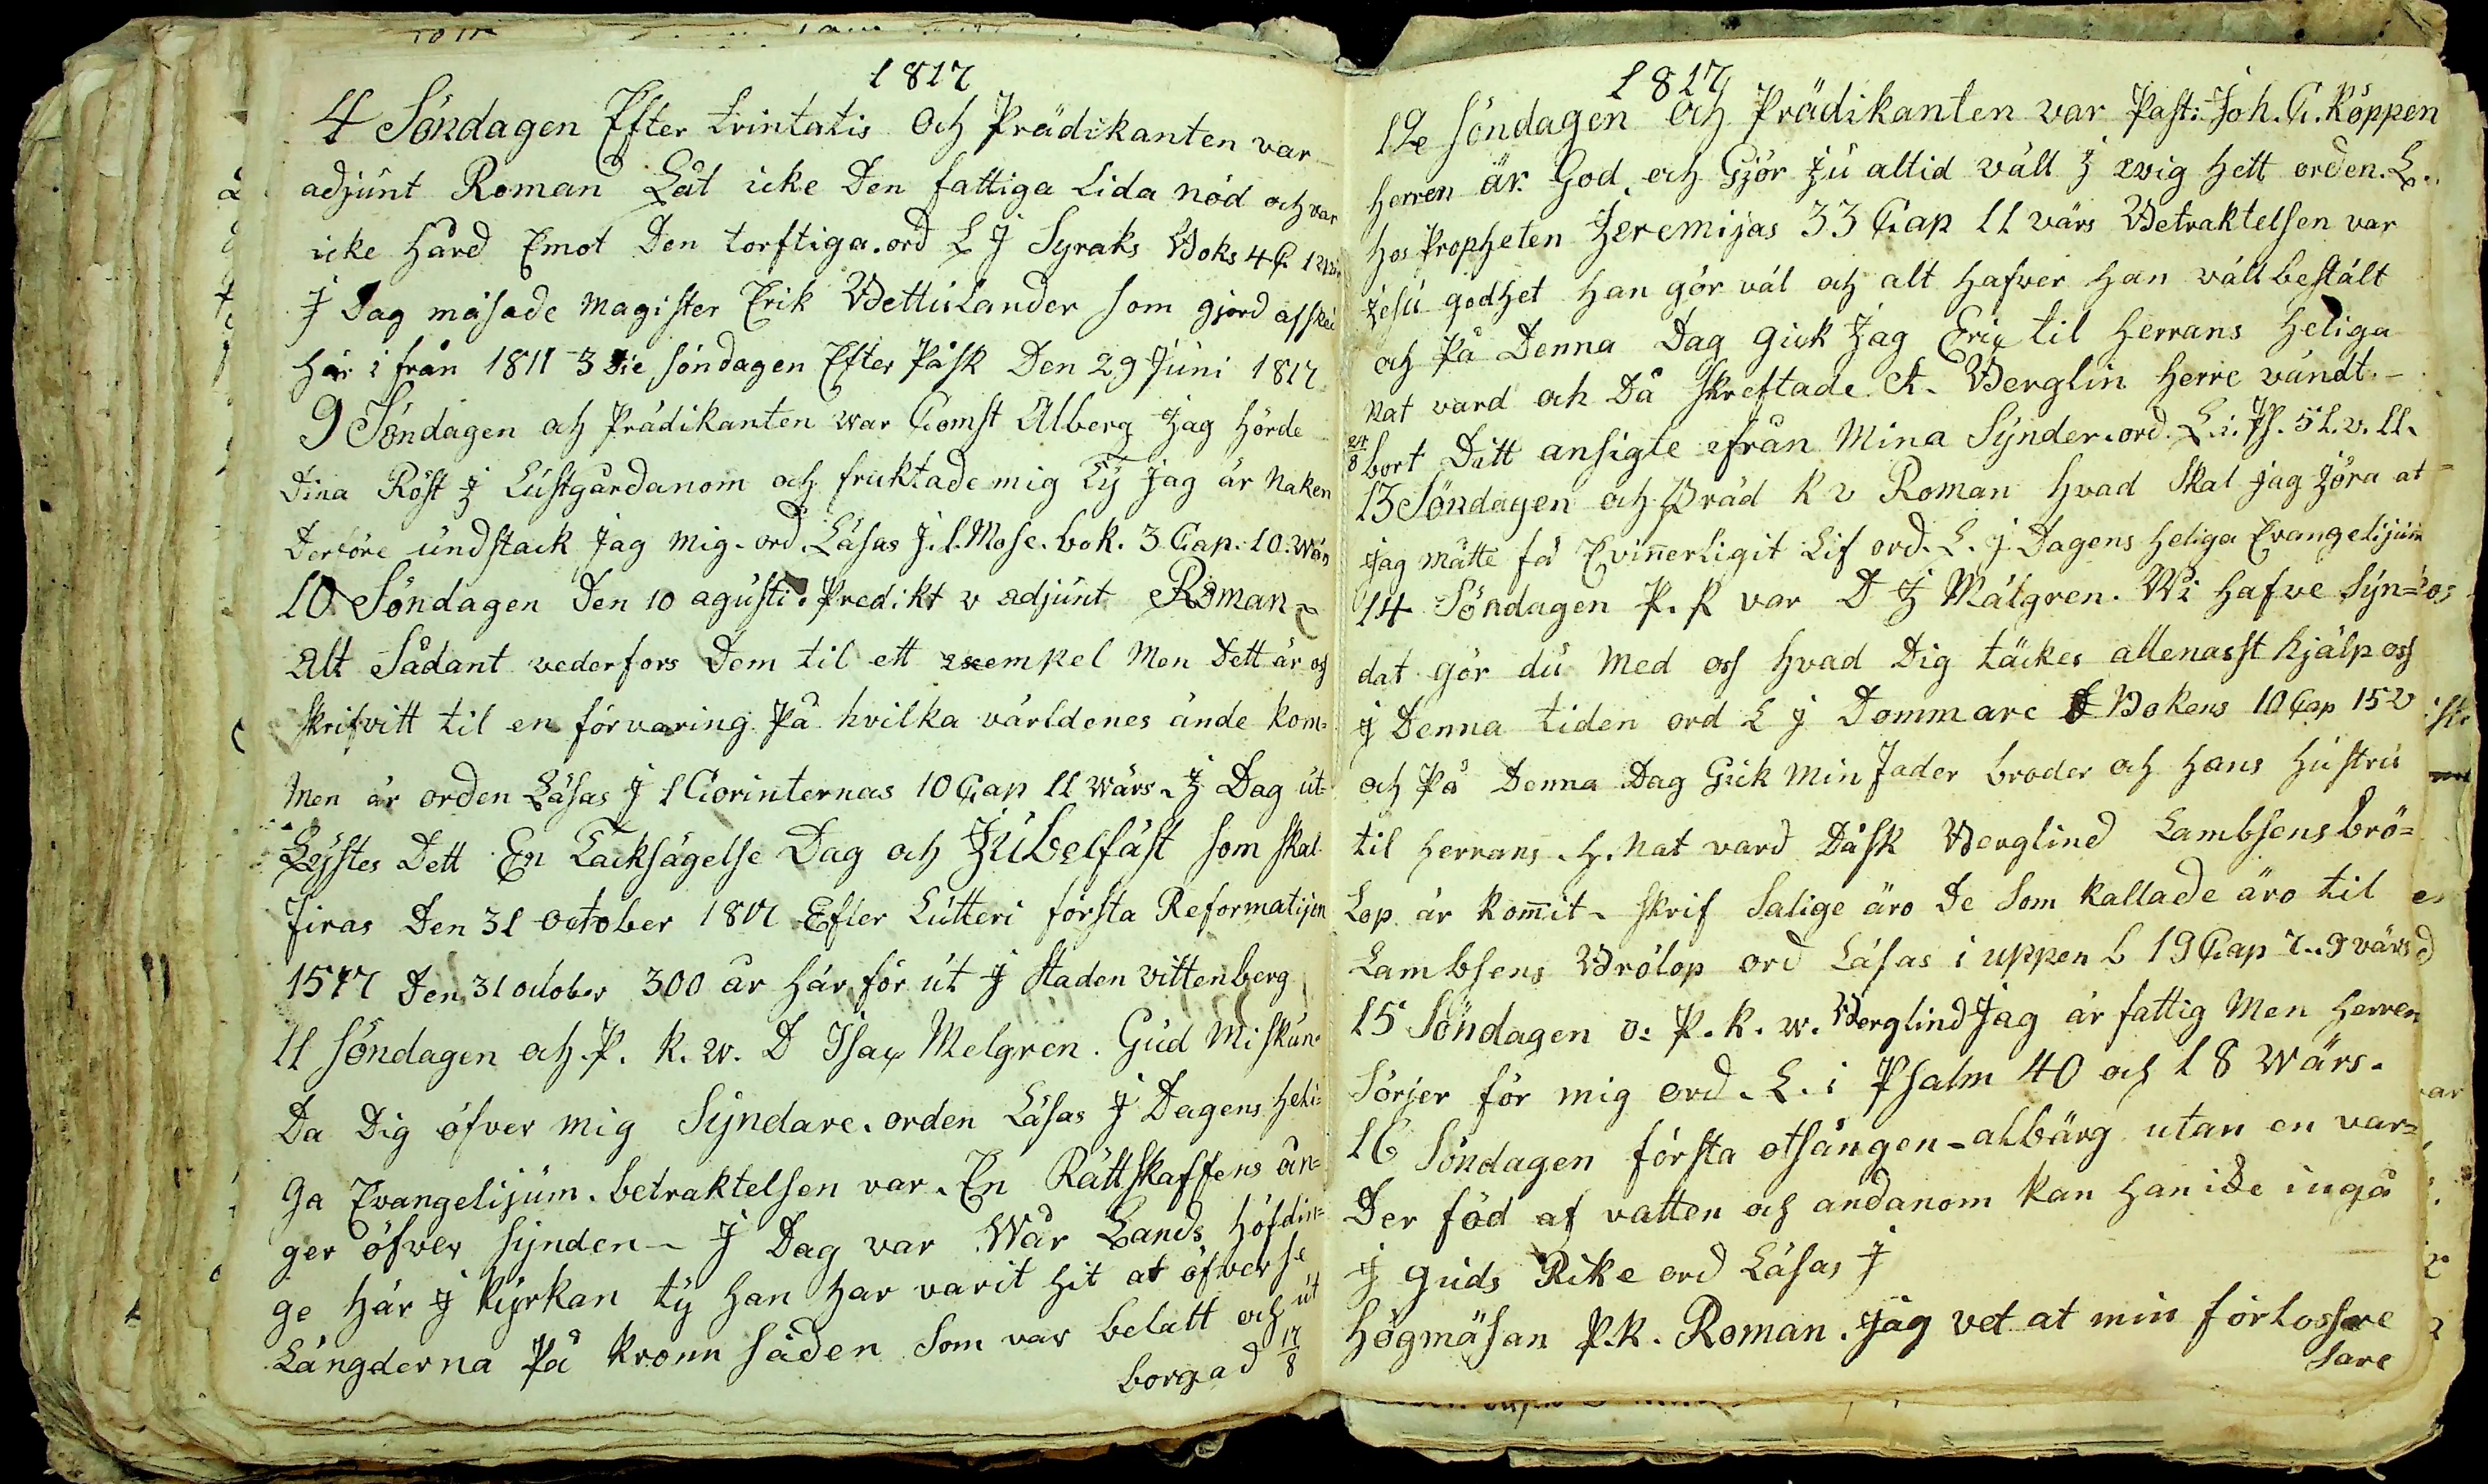 1817
4 Söndagen Efter trintatis Och Prädikanten var
adjunt Roman Låt icke Den fattiga Lida nöd och var
icke hård Emot Den torftiga. ord L J Syraks Boks 4 C 1 wär
J Dag mäsade Magister Erik Bettulander som gjord afsked
här i från 1811 3 die söndagen Efter Påsk Den 29 Juni 1817
9 Söndagen och Prädikanten war Comst Alberg Jag hörde
Dina Röst J Lustgårdanom och fruktade mig Ty Jag är Naken
Derföre undstack Jag mig. ord. Läsas J. 1. Mose. bok. 3 Cap. 10. Wärs
10 Söndagen Den 10 agusti. Predikt v adjunt Roman
Alt Sådant vederfors Dem til ett exempel Men Dett är och
skrifvitt til en förvaring På hvilka världenes ände kom=
Men är orden Läsas J 1 Corinternas 10 Cap 11 wärs. J Dag ut=
Lystes Dett En Tacksägelse Dag och Jubelfäst som skal
firas Den 31 october 1817 Efter Lutteri första Reformatijon
1517 Den 31 october 300 år här för ut J staden vittenberg
11 söndagen och. P. k. w. D Isac Melgren. Gud Miskun=
Da Dig öfver mig Syndare. orden Läsas J Dagens Heli=
ga Evangelijum. betraktelsen var. En Rättskaffens ån=
ger öfver synden - J Dag var Wår Lands höfdin=
ge här J Kyrkan ty han har varit hit at öfver se
Längderna På kronn säden som var belatt och ut
borgad 17/8
1817
12e söndagen och Prädikanten var Past: Joh. C. Köppen
Herren är God och Gjör Ju altid väll J evig hett orden. L.
hos Propheten Jeremijas 33 Cap 11 värs Betraktelsen var
Jesu godhet han gör väl och alt hafver han väll bestält
och På Denna Dag gick Jag Eric til Herrans Heliga
Nat vard och Då skreftade A. Berglin Herre vändt. -
24/8 bort Ditt ansigte ifrån Mina Synder. ord. L. i. Ps. 51. v. 11.
13 Söndagen och Präd K v Roman Hvad Skal Jag Jöra at
Jag Måtte få Evinnerligit Lif ord. L. J Dagens heliga Evangelijum
14 Söndagen P. K var D J Mälgren. Wi hafve Syn=
dat gör du Med oss hvad Dig täckes allenasst hjälp oss
J Denna tiden ord L J Dommare Bokens 10 Cap 15 v
och På Denna Dag Gick Min Fader broder och Hans Hustru
til Herrans. H. Nat vard Då sk Berglind Lambsens brö=
Lop är kommit. skrif Salige äro De Som kallade äro til
Lambsens Brölop ord Läsas i uppen b 19 Cap 7. 9 värs
15 Söndagen o: P. K. w. Berglind Jag är fattig Men Herren
Sörjer för mig ord. L. i Psalm 40 och 18 Wärs.
16 Söndagen första otsången - albärg utan en var=
Der föd af vatten och andanom kan han icke ingå
J guds Rike ord Läsas J
Högmäsan P.K. Roman. Jag vet at min förlossare
sare